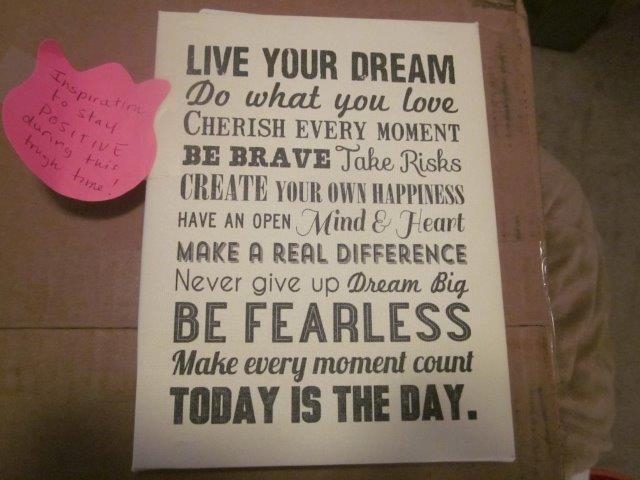 Inspiration
to stay
POSITIVE
during this
tough time!
LIVE YOUR DREAM
Do what you love
CHERISH EVERY MOMENT
BE BRAVE Take Risks
CREATE YOUR OWN HAPPINESS
HAVE AN OPEN Mind & Heart
MAKE A REAL DIFFERENCE
Never give up Dream Big
BE FEARLESS
Make every moment count
TODAY IS THE DAY.